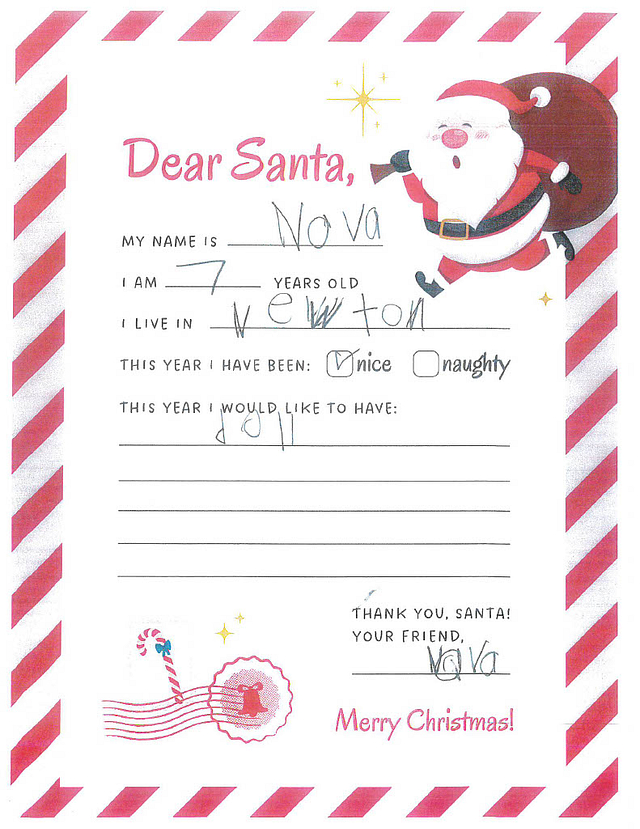 Dear Santa,
MY NAME IS Nova
I AM 7 YEARS OLD
I LIVE IN Newton
THIS YEAR I HAVE BEEN: nice naughty
THIS YEAR I WOULD LIKE TO HAVE:
doll
THANK YOU, SANTA!
YOUR FRIEND,
Merry Christmas!